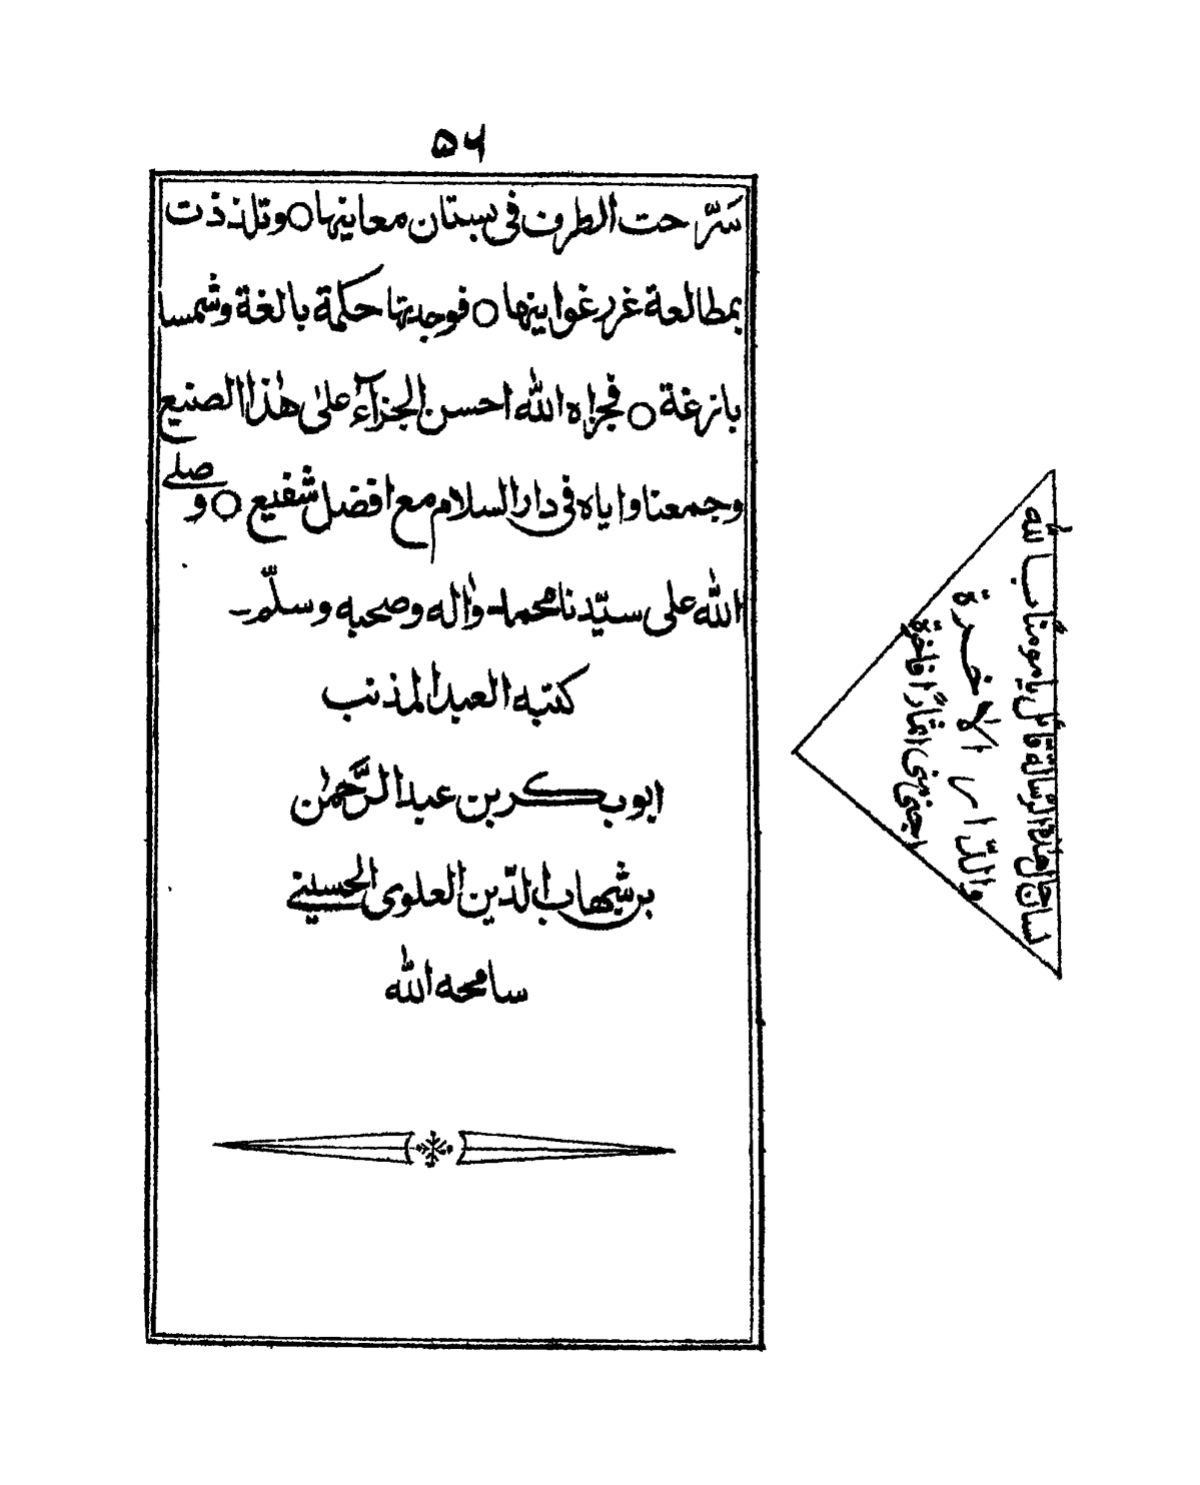 ۵۶
سَرَّحت الطرف فى بستان معانيها ○ وتلذذت
بمطالعة غرر غوانيها ○ فوجدتها حكمة بالغة وشمسا
بازغة ○ فجزاه الله احسن الجزآء علىٰ هٰذا الصنيع
وجمعنا واياه فى دار السلام مع افضل شفيع ○ وصلے
الله على سيّدنا محمد وٰاله وصحبه وسلّم ـ
كتبه العبد المذنب
ابوبكر بن عبد الرَّحمٰن
بن شهاب الدّين العلوى الحسينے
سامحه الله